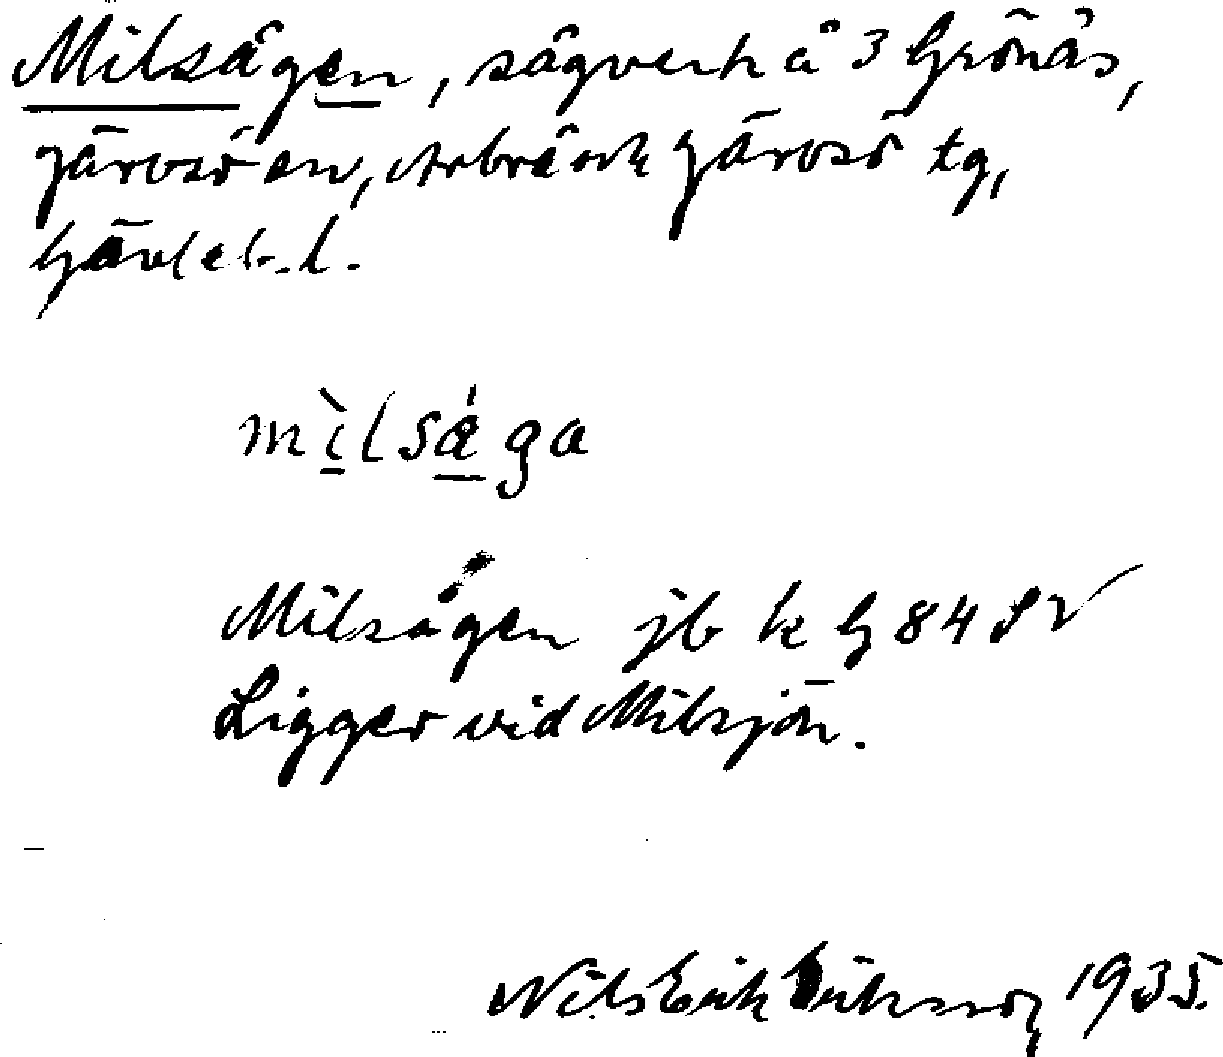 Milsågen, sågverk å 3 Grönås,
Järvsö sn, Arbrå och Järvsö tg,
Gävleb. l.
mìlsǽga
Milsågen jb k G 84 SV
Ligger vid Milsjön.
Nils Erik Eriksson 1935.